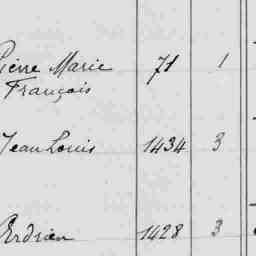 Pierre Marie 71 1
François
Jean Louis 1434 3
Adrien 1428 3